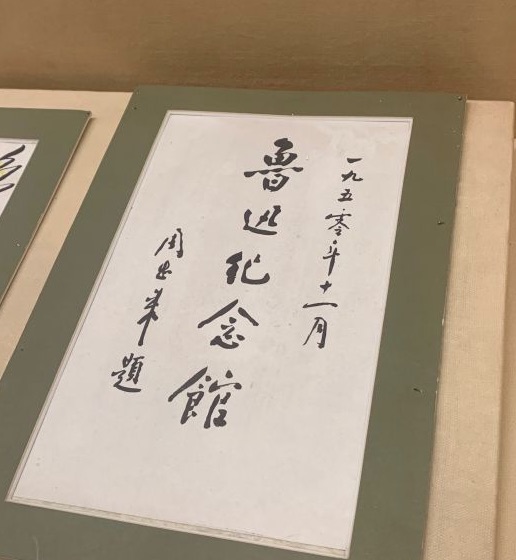 一九五零年十一月
魯迅纪念館
周恩来題